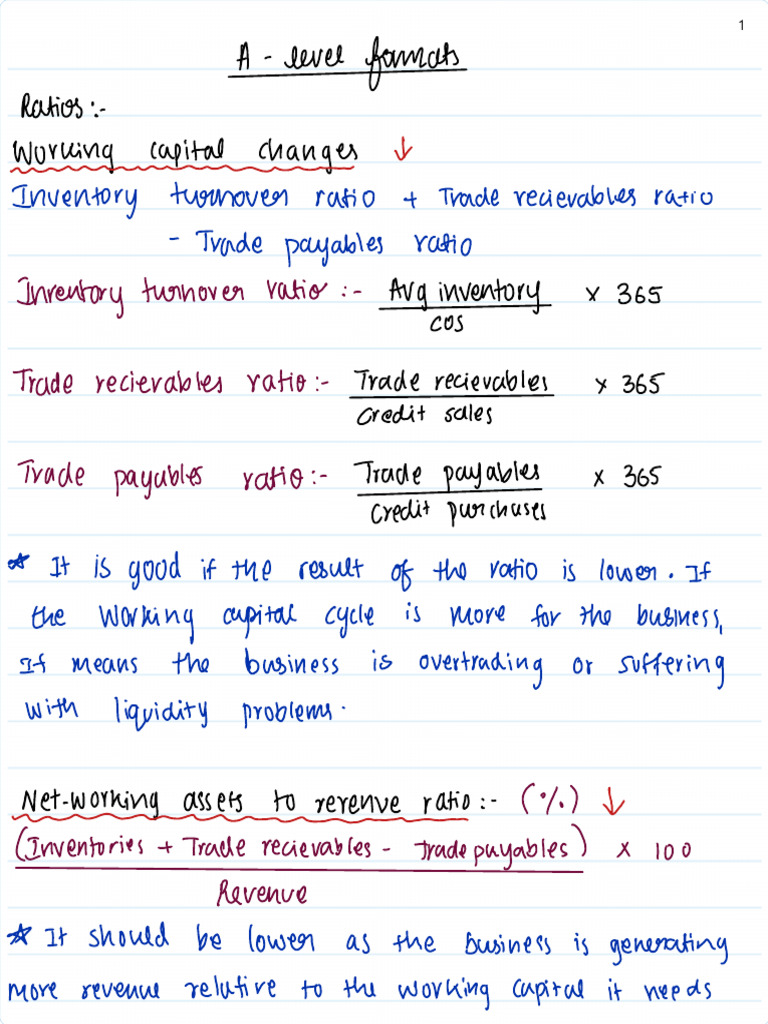 1
A - level formats
Ratios :-
Working capital changes ↓
Inventory turnover ratio + Trade recievables ratio
- Trade payables ratio
Inventory turnover ratio :- Avg inventory × 365
COS
Trade recievables ratio :- Trade recievables × 365
Credit sales
Trade payables ratio :- Trade payables × 365
Credit purchases
* It is good if the result of the ratio is lower. If
the working capital cycle is more for the business,
It means the business is overtrading or suffering
with liquidity problems.
Net-working assets to revenue ratio :- (%) ↓
(Inventories + Trade recievables - Trade payables) × 100
Revenue
* It should be lower as the business is generating
more revenue relative to the working capital it needs